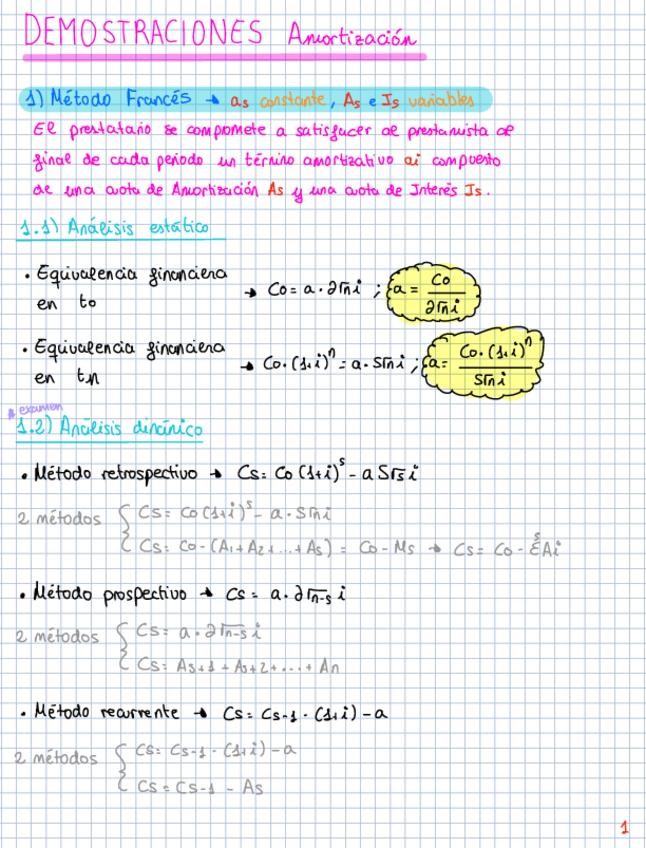 DEMOSTRACIONES Amortización
1) Método Francés → as constante, As e Is variables
El prestatario se compromete a satisfacer al prestamista al
final de cada periodo un término amortizativo ai compuesto
de una cuota de Amortización As y una cuota de Interés Is.
1.1) Análisis estático
• Equivalencia financiera en to → Co = a · a┐n i ; a = Co / a┐n i
• Equivalencia financiera en tn → Co · (1+i)^n = a · S┐n i ; a = Co · (1+i)^n / S┐n i
* examen
1.2) Análisis dinámico
• Método retrospectivo → Cs = Co (1+i)^s - a S┐s i
2 métodos { Cs = Co (1+i)^s - a · S┐n i
Cs = Co - (A1 + A2 + ... + As) = Co - Ms → Cs = Co - Σ^s Ai
• Método prospectivo → Cs = a · a┐n-s i
2 métodos { Cs = a · a┐n-s i
Cs = As+1 + As+2 + ... + An
• Método recurrente → Cs = Cs-1 · (1+i) - a
2 métodos { Cs = Cs-1 · (1+i) - a
Cs = Cs-1 - As
1